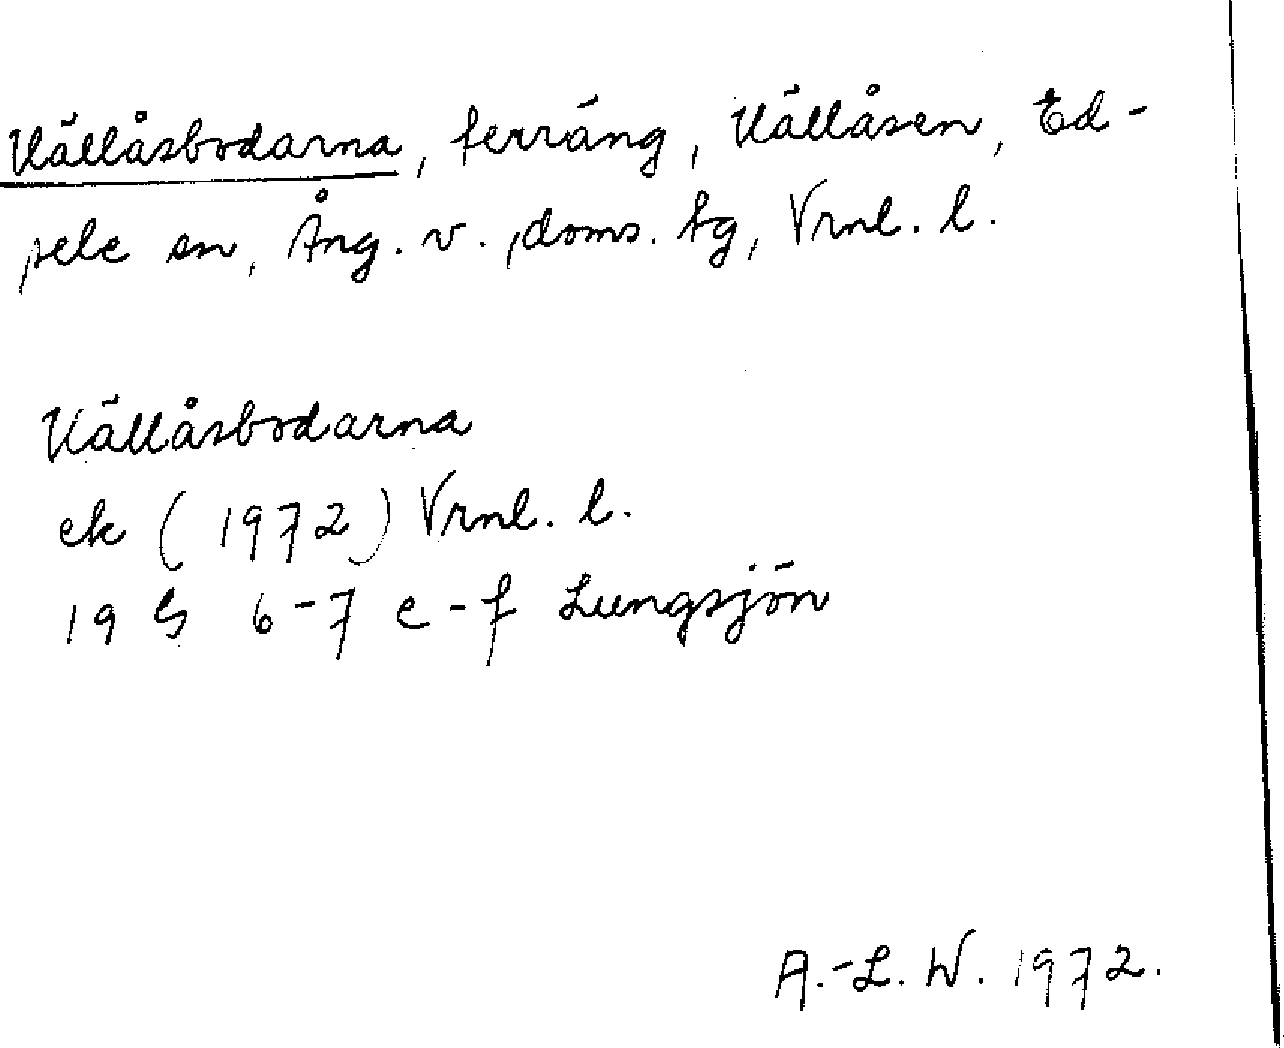 Källåsbodarna, terräng, Källåsen, Ed-
sele sn, Ång. v. doms. tg, Vrnl. l.
Källåsbodarna
ek (1972) Vrnl. l.
19 G 6-7 e-f Lungsjön
A.-L. W. 1972.